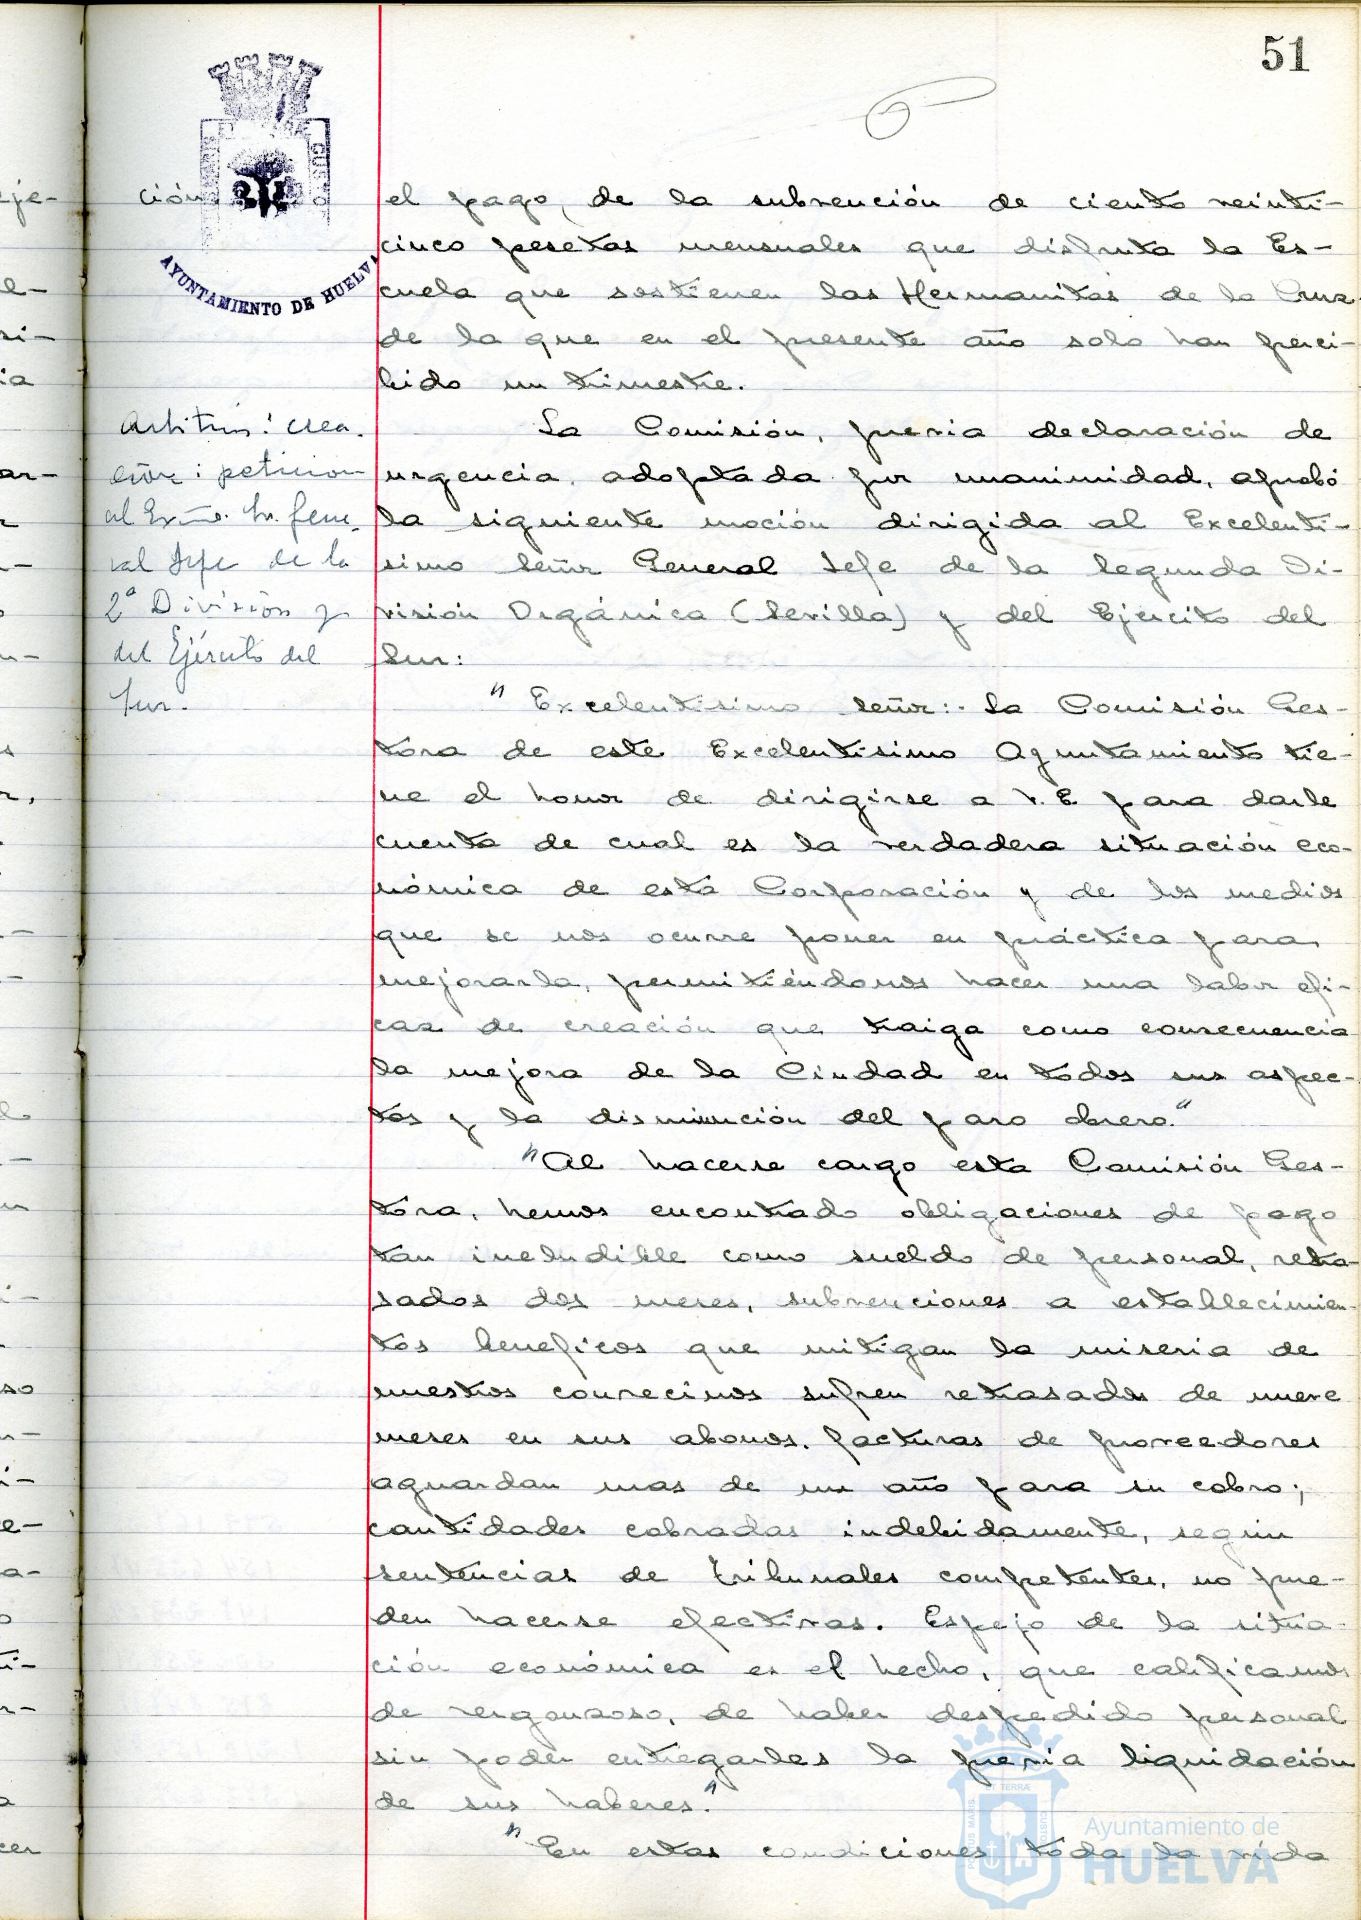 51
ción
el pago, de la subvención de ciento veinti-
cinco pesetas mensuales que disfruta la Es-
cuela que sostienen las Hermanitas de la Cruz
de la que en el presente año solo han perci-
bido un trimestre.
AYUNTAMIENTO DE HUELVA
Arbitrios: crea-
ción: peticion
al Exmo. Sr. Gene-
ral Jefe de la
2ª División y
del Ejército del
Sur.
La Comisión, previa declaración de
urgencia, adoptada por unanimidad, aprobó
la siguiente moción dirigida al Excelentí-
simo Señor General Jefe de la Segunda Di-
visión Orgánica (Sevilla) y del Ejército del
Sur:
"Excelentísimo Señor:- La Comisión Ges-
tora de este Excelentísimo Ayuntamiento tie-
ne el honor de dirigirse a V.E para darle
cuenta de cual es la verdadera situación eco-
nómica de esta Corporación y de los medios
que se nos ocurre poner en práctica para
mejorarla, permitiéndonos hacer una labor efi-
caz de creación que traiga como consecuencia
la mejora de la Ciudad en todos sus aspec-
tos y la disminución del paro obrero."
"Al hacerse cargo esta Comisión Ges-
tora, hemos encontrado obligaciones de pago
tan ineludible como sueldo de personal, retra-
sados dos meses, subvenciones a establecimien-
tos beneficos que mitigan la miseria de
nuestros convecinos sufren retrasados de nueve
meses en sus abonos, facturas de proveedores
aguardan mas de un año para su cobro;
cantidades cobradas indebidamente, según
sentencias de tribunales competentes, no pue-
den hacerse efectivas. Espejo de la situa-
ción económica es el hecho, que calificamos
de vergonzoso, de haber despedido personal
sin poder entregarles la previa liquidación
de sus haberes."
"En estas condiciones toda la vida
Ayuntamiento de
HUELVA